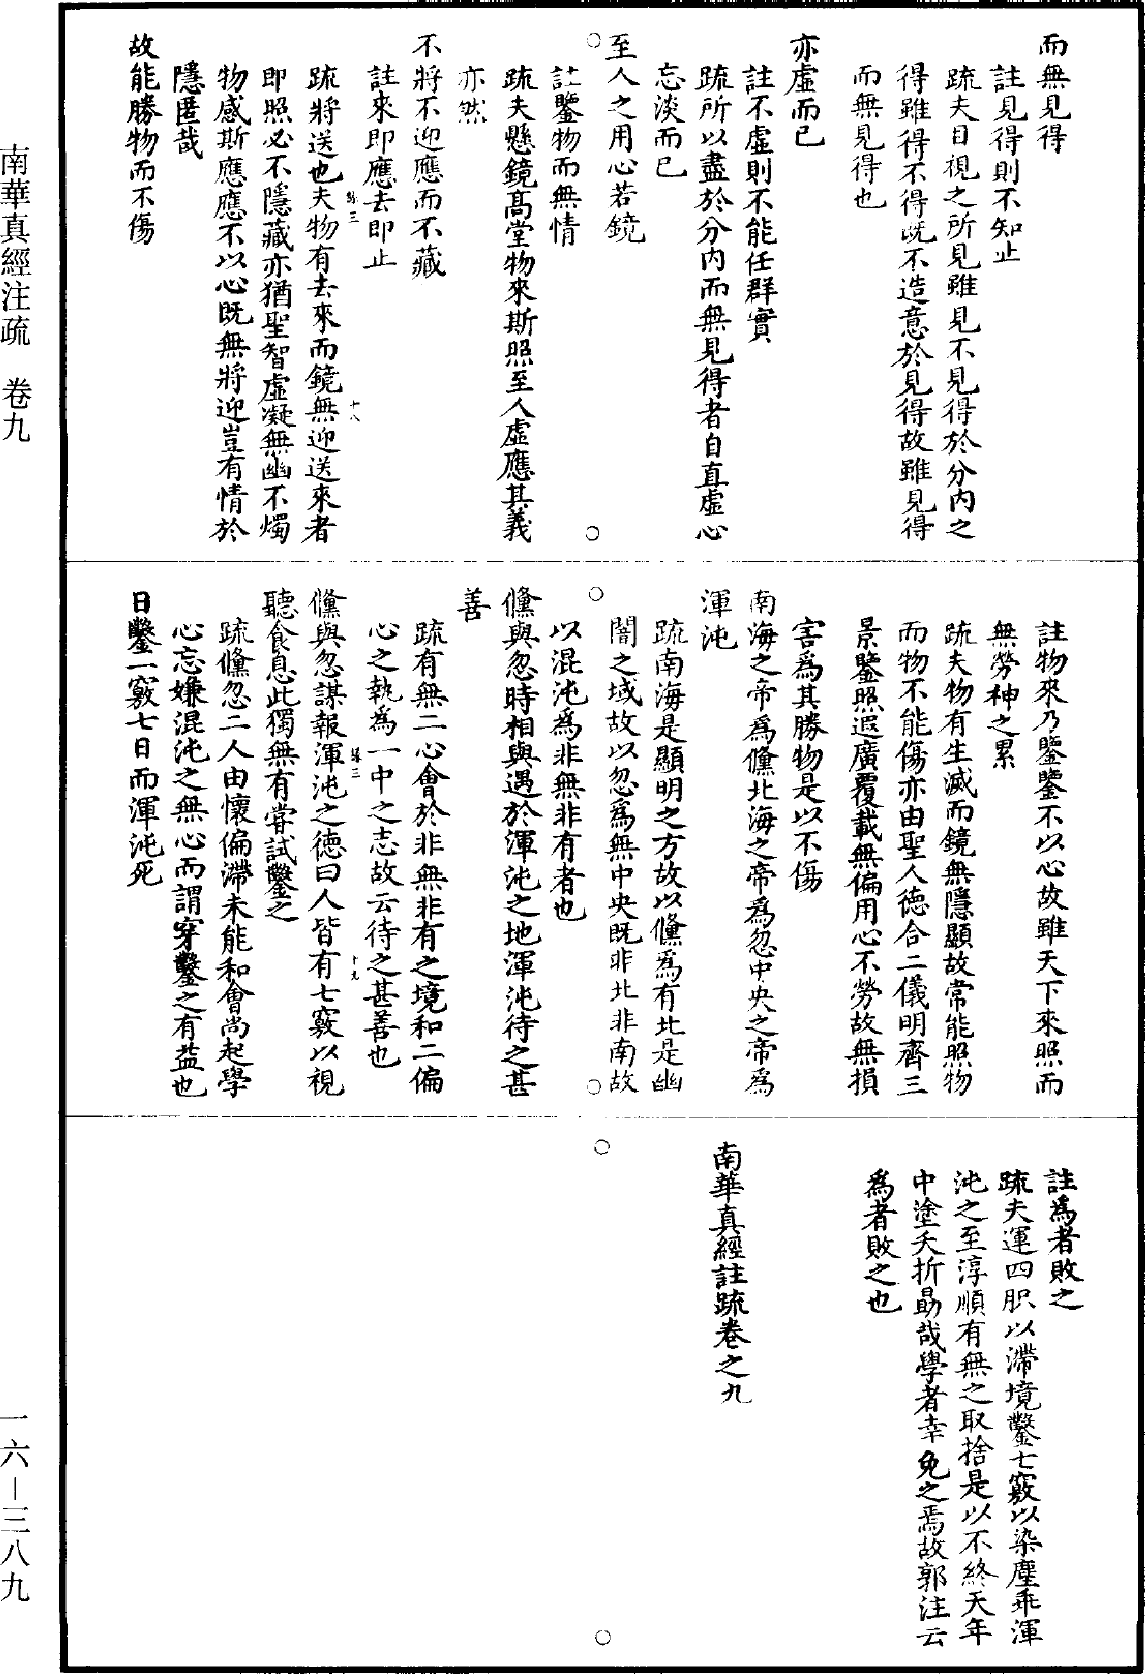 而無見得
註見得則不知止
疏夫目視之所見雖見不見得於分内之
得雖得不得既不造意於見得故雖見得
而無見得也
亦虛而已
註不虛則不能任群實
疏所以盡於分内而無見得者自直虛心
忘淡而已
至人之用心若鏡
註鑒物而無情
疏夫懸鏡高堂物來斯照至人虛應其義
亦然
不將不迎應而不藏
註來即應去即止
疏將送也夫物有去來而鏡無迎送來者
即照必不隱藏亦猶聖智虛凝無幽不燭
物感斯應應不以心既無將迎豈有情於
隱匿哉
故能勝物而不傷
註物來乃鑒鑒不以心故雖天下來照而
無勞神之累
疏夫物有生滅而鏡無隱顯故常能照物
而物不能傷亦由聖人德合二儀明齊三
景鑒照遐廣覆載無偏用心不勞故無損
害為其勝物是以不傷
南海之帝為儵北海之帝為忽中央之帝為
渾沌
疏南海是顯明之方故以儵為有北是幽
闇之域故以忽為無中央既非北非南故
以混沌為非無非有者也
儵與忽時相與遇於渾沌之地渾沌待之甚
善
疏有無二心會於非無非有之境和二偏
心之執為一中之志故云待之甚善也
儵與忽謀報渾沌之德曰人皆有七竅以視
聽食息此獨無有嘗試鑿之
疏儵忽二人由懷偏滯未能和會尚起學
心忘嫌混沌之無心而謂穿鑿之有益也
日鑿一竅七日而渾沌死
註為者敗之
疏夫運四肢以滯境鑿七竅以染塵乖渾
沌之至淳順有無之取捨是以不終天年
中塗夭折勗哉學者幸免之焉故郭注云
為者敗之也
南華真經註疏卷之九
南華真經注疏 卷九
一六—三八九